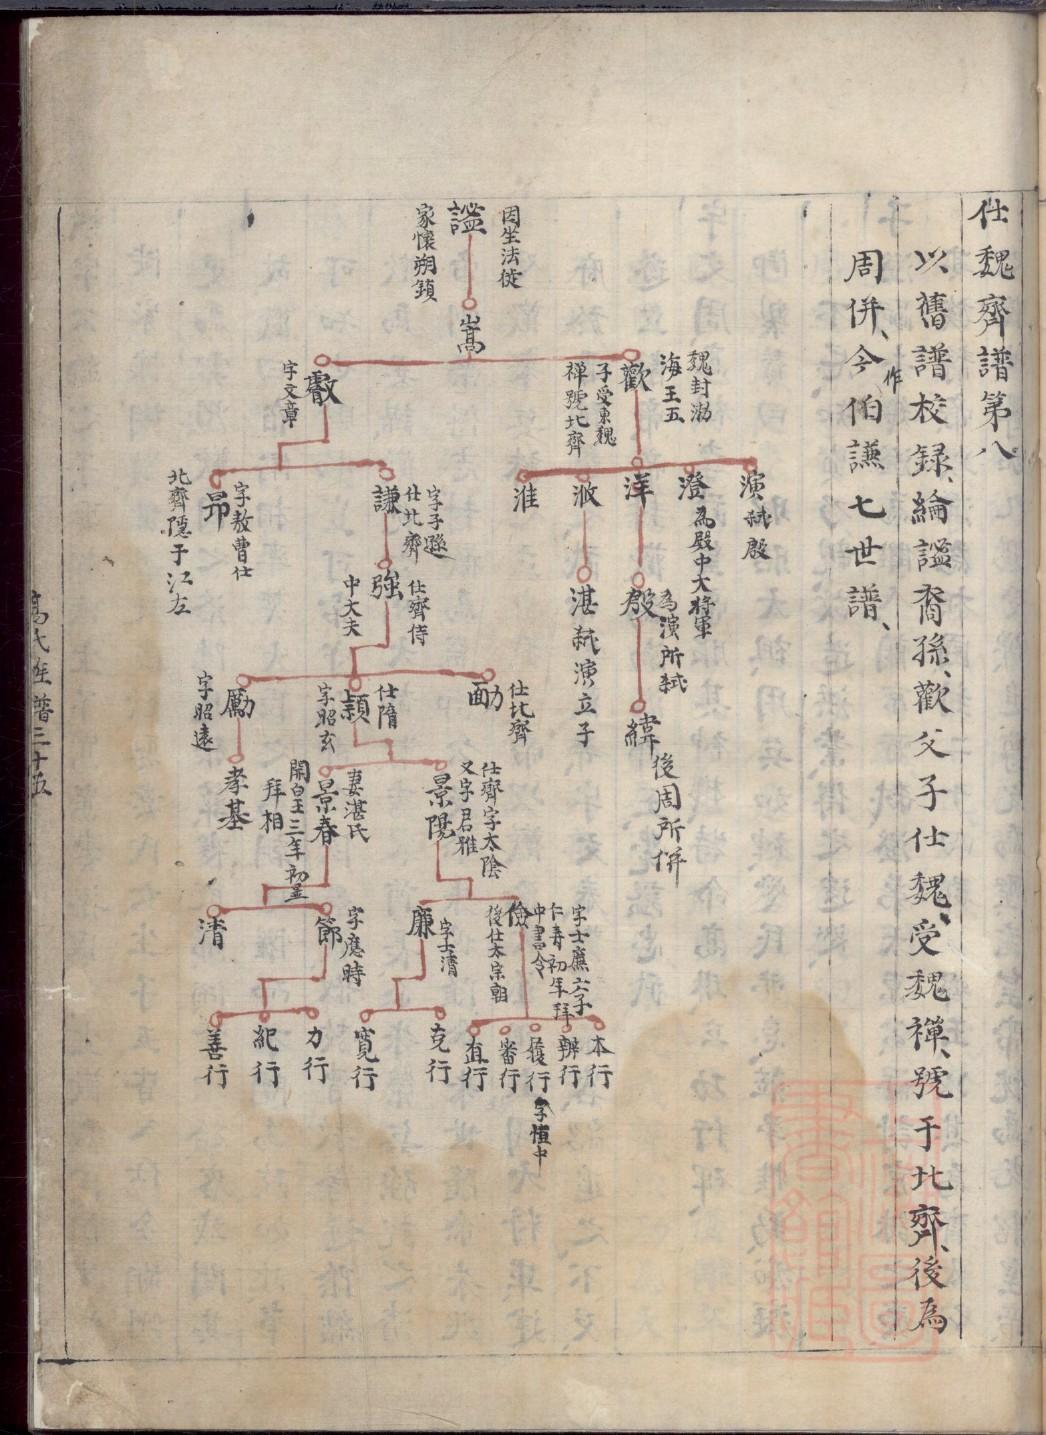 仕魏齊譜第八
以舊譜校録、綸謐裔孫、歡父子仕魏、受魏禪、號于北齊、後為
周併、今作伯謙七世譜、
因生法從
謐
家懷朔鎮
嵩
魏封渤
海王五
歡
子受東魏
禪號北齊
字文章
演弑殷
澄為殿中大將軍
洋
淮
字子遜
謙
仕北齊
字敖曹仕
昂
北齊隱于江左
殷為演所弑
湛弑演立子
仕齊侍
強
中大夫
緯後周所併
仕北齊
勔
仕隋
頴
字昭玄
勵
字昭遠
仕齊字太陰
景陽
又字君雅
妻湛氏
景春
開皇三年初
拜相
孝基
字士廉六子
仁壽初年拜
中書令
儉
後仕太宗朝
廉字士清
節字應時
清
本行
辦行
履行字慎中
審行
直行
克行
寬行
力行
紀行
善行
高氏班譜三十五